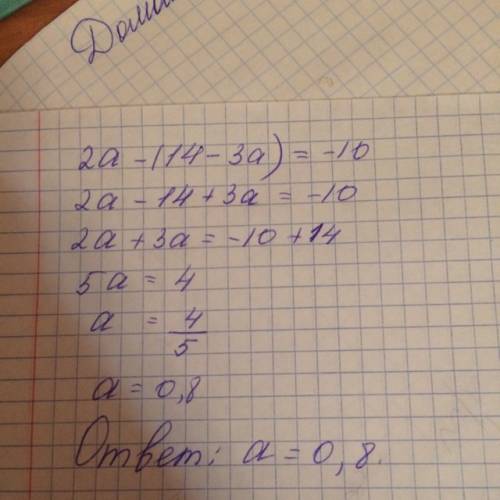 2a - (14 - 3a) = -10
2a - 14 + 3a = -10
2a + 3a = -10 + 14
5a = 4
a = 4/5
a = 0,8
Ответ: a = 0,8.